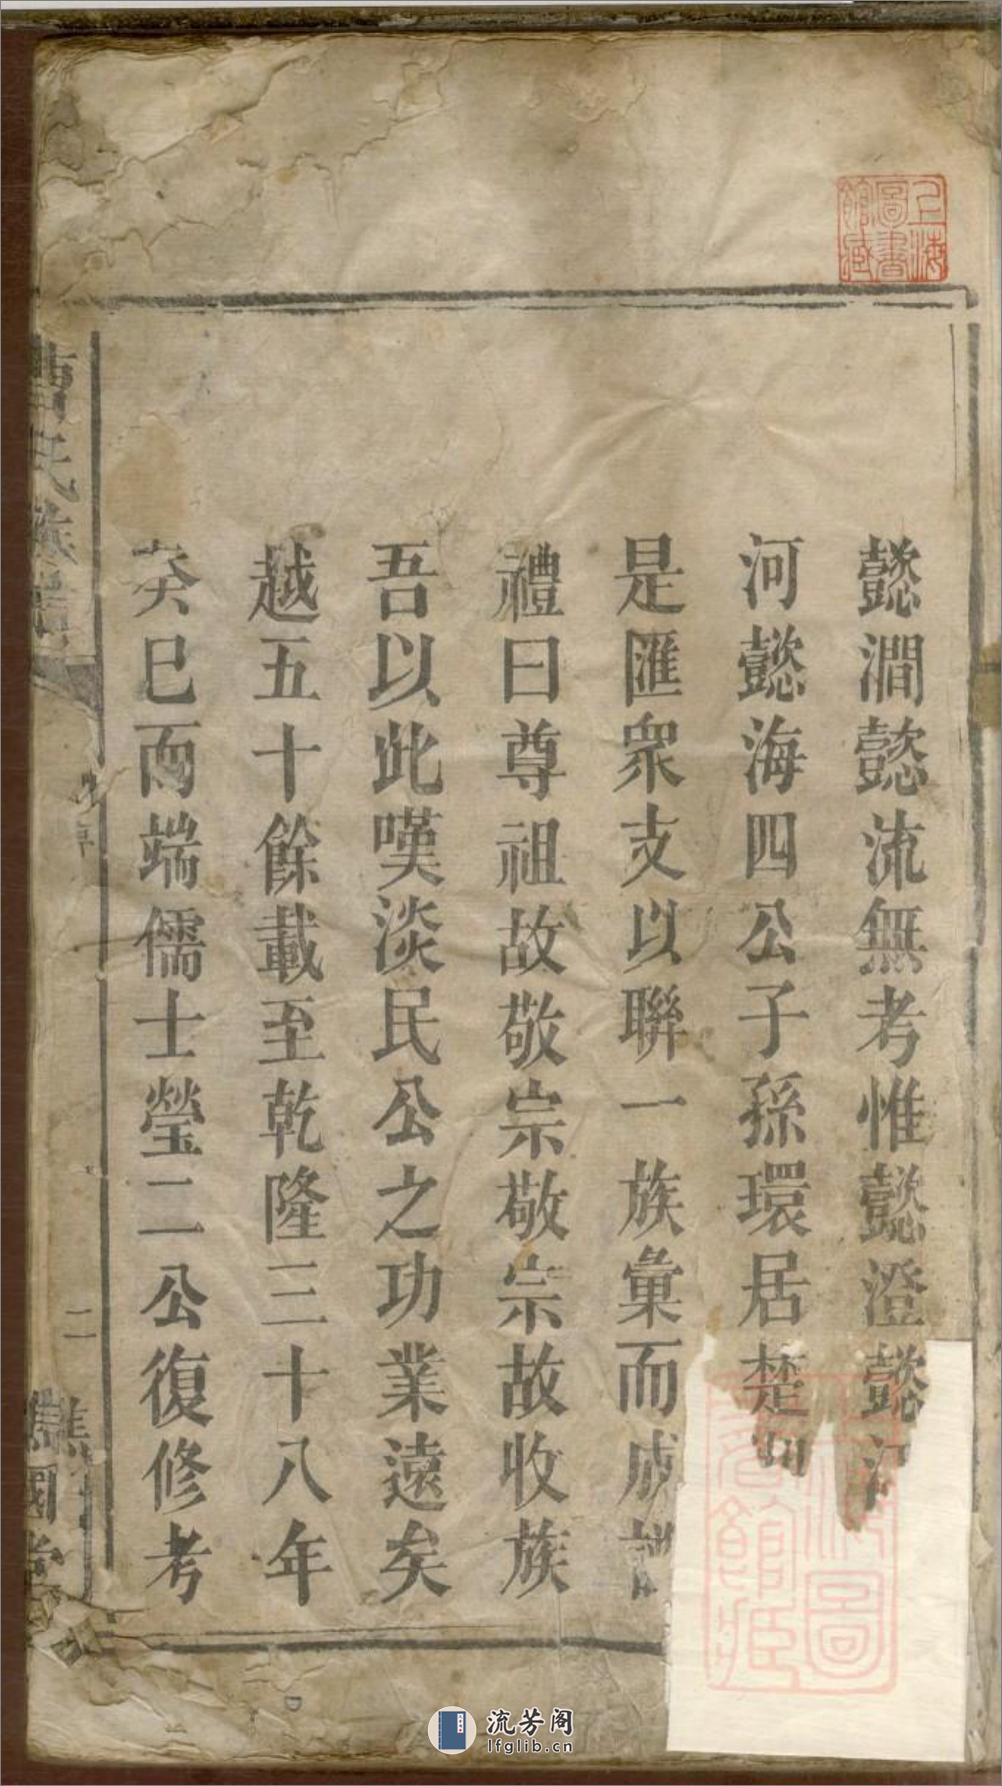 上海圖書館藏
懿澗懿流無考惟懿澄懿
河懿海四公子孫環居楚
是匯眾支以聯一族彙而成
禮曰尊祖故敬宗敬宗故收族
吾以此嘆淡民公之功業遠矣
越五十餘載至乾隆三十八年
癸巳而端儒士瑩二公復修考
氏族譜
二
國堂
圖
館藏
流芳阁
lfglib.cn